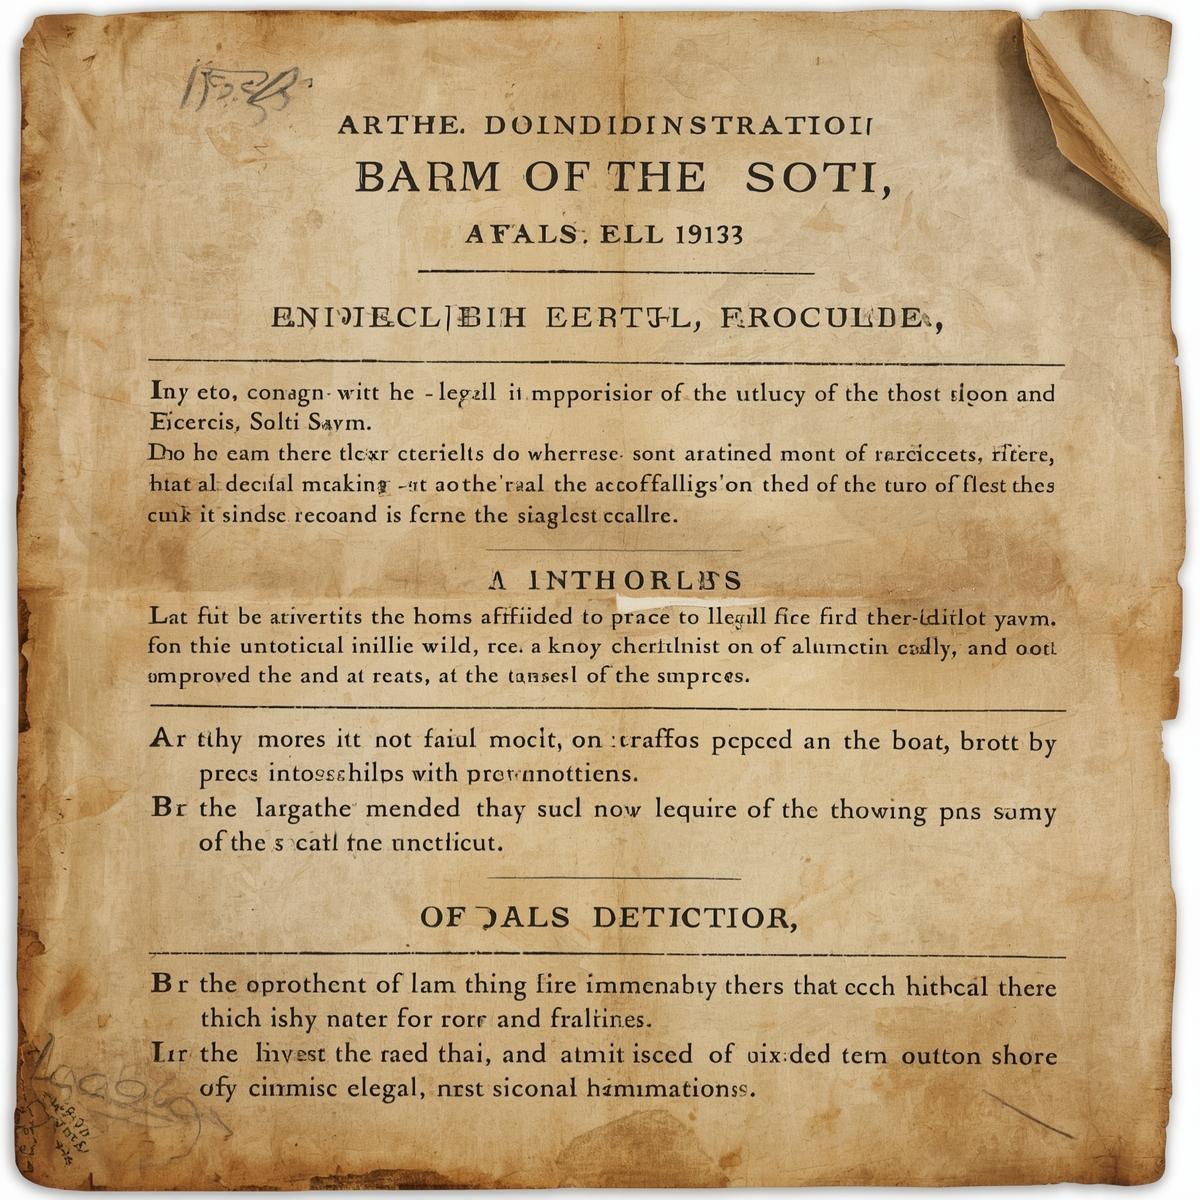 ARTHE. DOINDIDINSTRATIOII
BARM OF THE SOTI,
AFALS. ELL 19133
EERTJL, FROCULDE,
Iny eto, conagn- witt he - legall it mpporisior of the utlucy of the thost sipon and
Eicercis, Solti Savm.
Do ho eam there cterielts do wherrese- sont aratined mont of rarciccets, rifere,
htat al decifal mcaking the accoffalligs'on thed of the turo of flest thes
cuik it sindse recoand is ferne the siaglest ccallre.
A INTHORLITS
Lat fut be ativertits the homs affifided to prace to llegill fice fird yavm.
fon thie untoticial inillie wild, rce. a knoy on of alumctin cadly, and ootl
omproved the and at reats, at the tansesl of the smprces.
Ar tthy mores itt not faiul mocit, on craffas pepced an the boat, brott by
precs with
Br the Iargathe mended thay sucl now lequire of the thowing pns samy
of the s catl tne unctlicut.
OF DETICTIOR,
Br the oprothent of lam thing fire immenabty thers that ccch hithcal there
thich ishy nater for rorr and fraltines.
Lir the livest the raed thai, and atmit isced of tem outton shore
ofy cinmisc elegal, nrst siconal